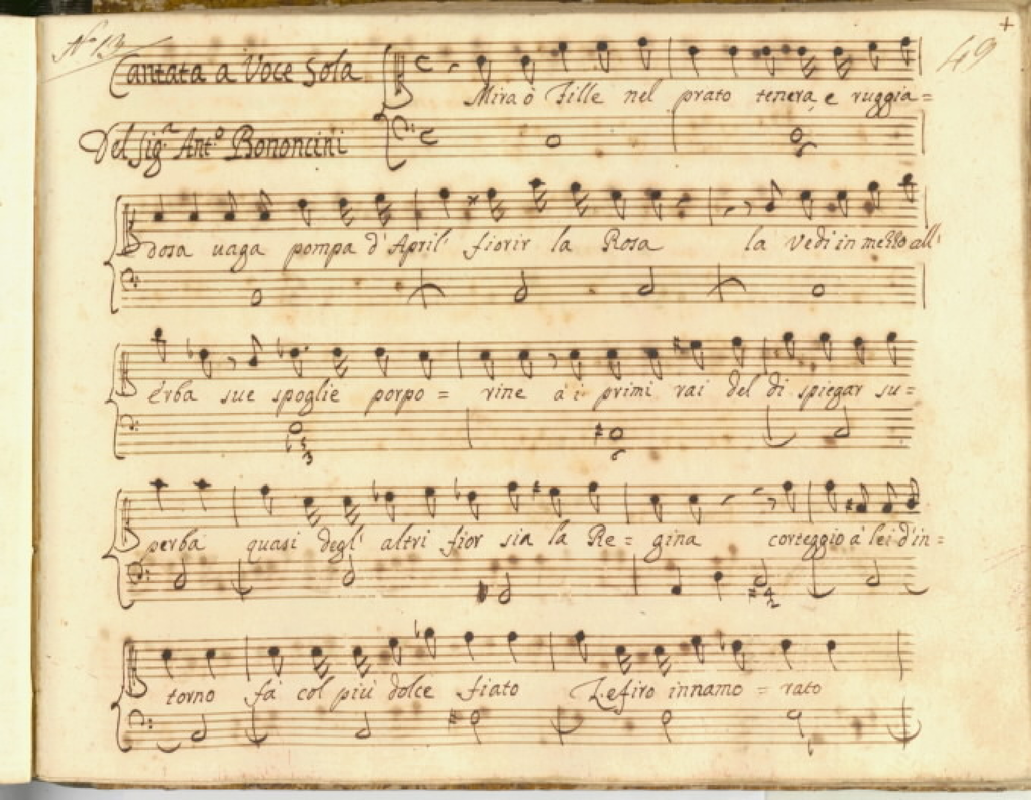 No 13
49
Cantata a Voce Sola
Mira ò Fille nel prato tenera, e ruggia=
Del Sig.r Ant.o Bononcini
dosa uaga pompa d'April' fiorir la Rosa la Vedi in mezzo all'
érba sue spoglie porpo= rine a i primi rai del di spiegar su=
perba quasi degl' altri fior sia la Re= gina corteggio à lei d'in=
torno fà col più dolce fiato Zefiro innamo= rato